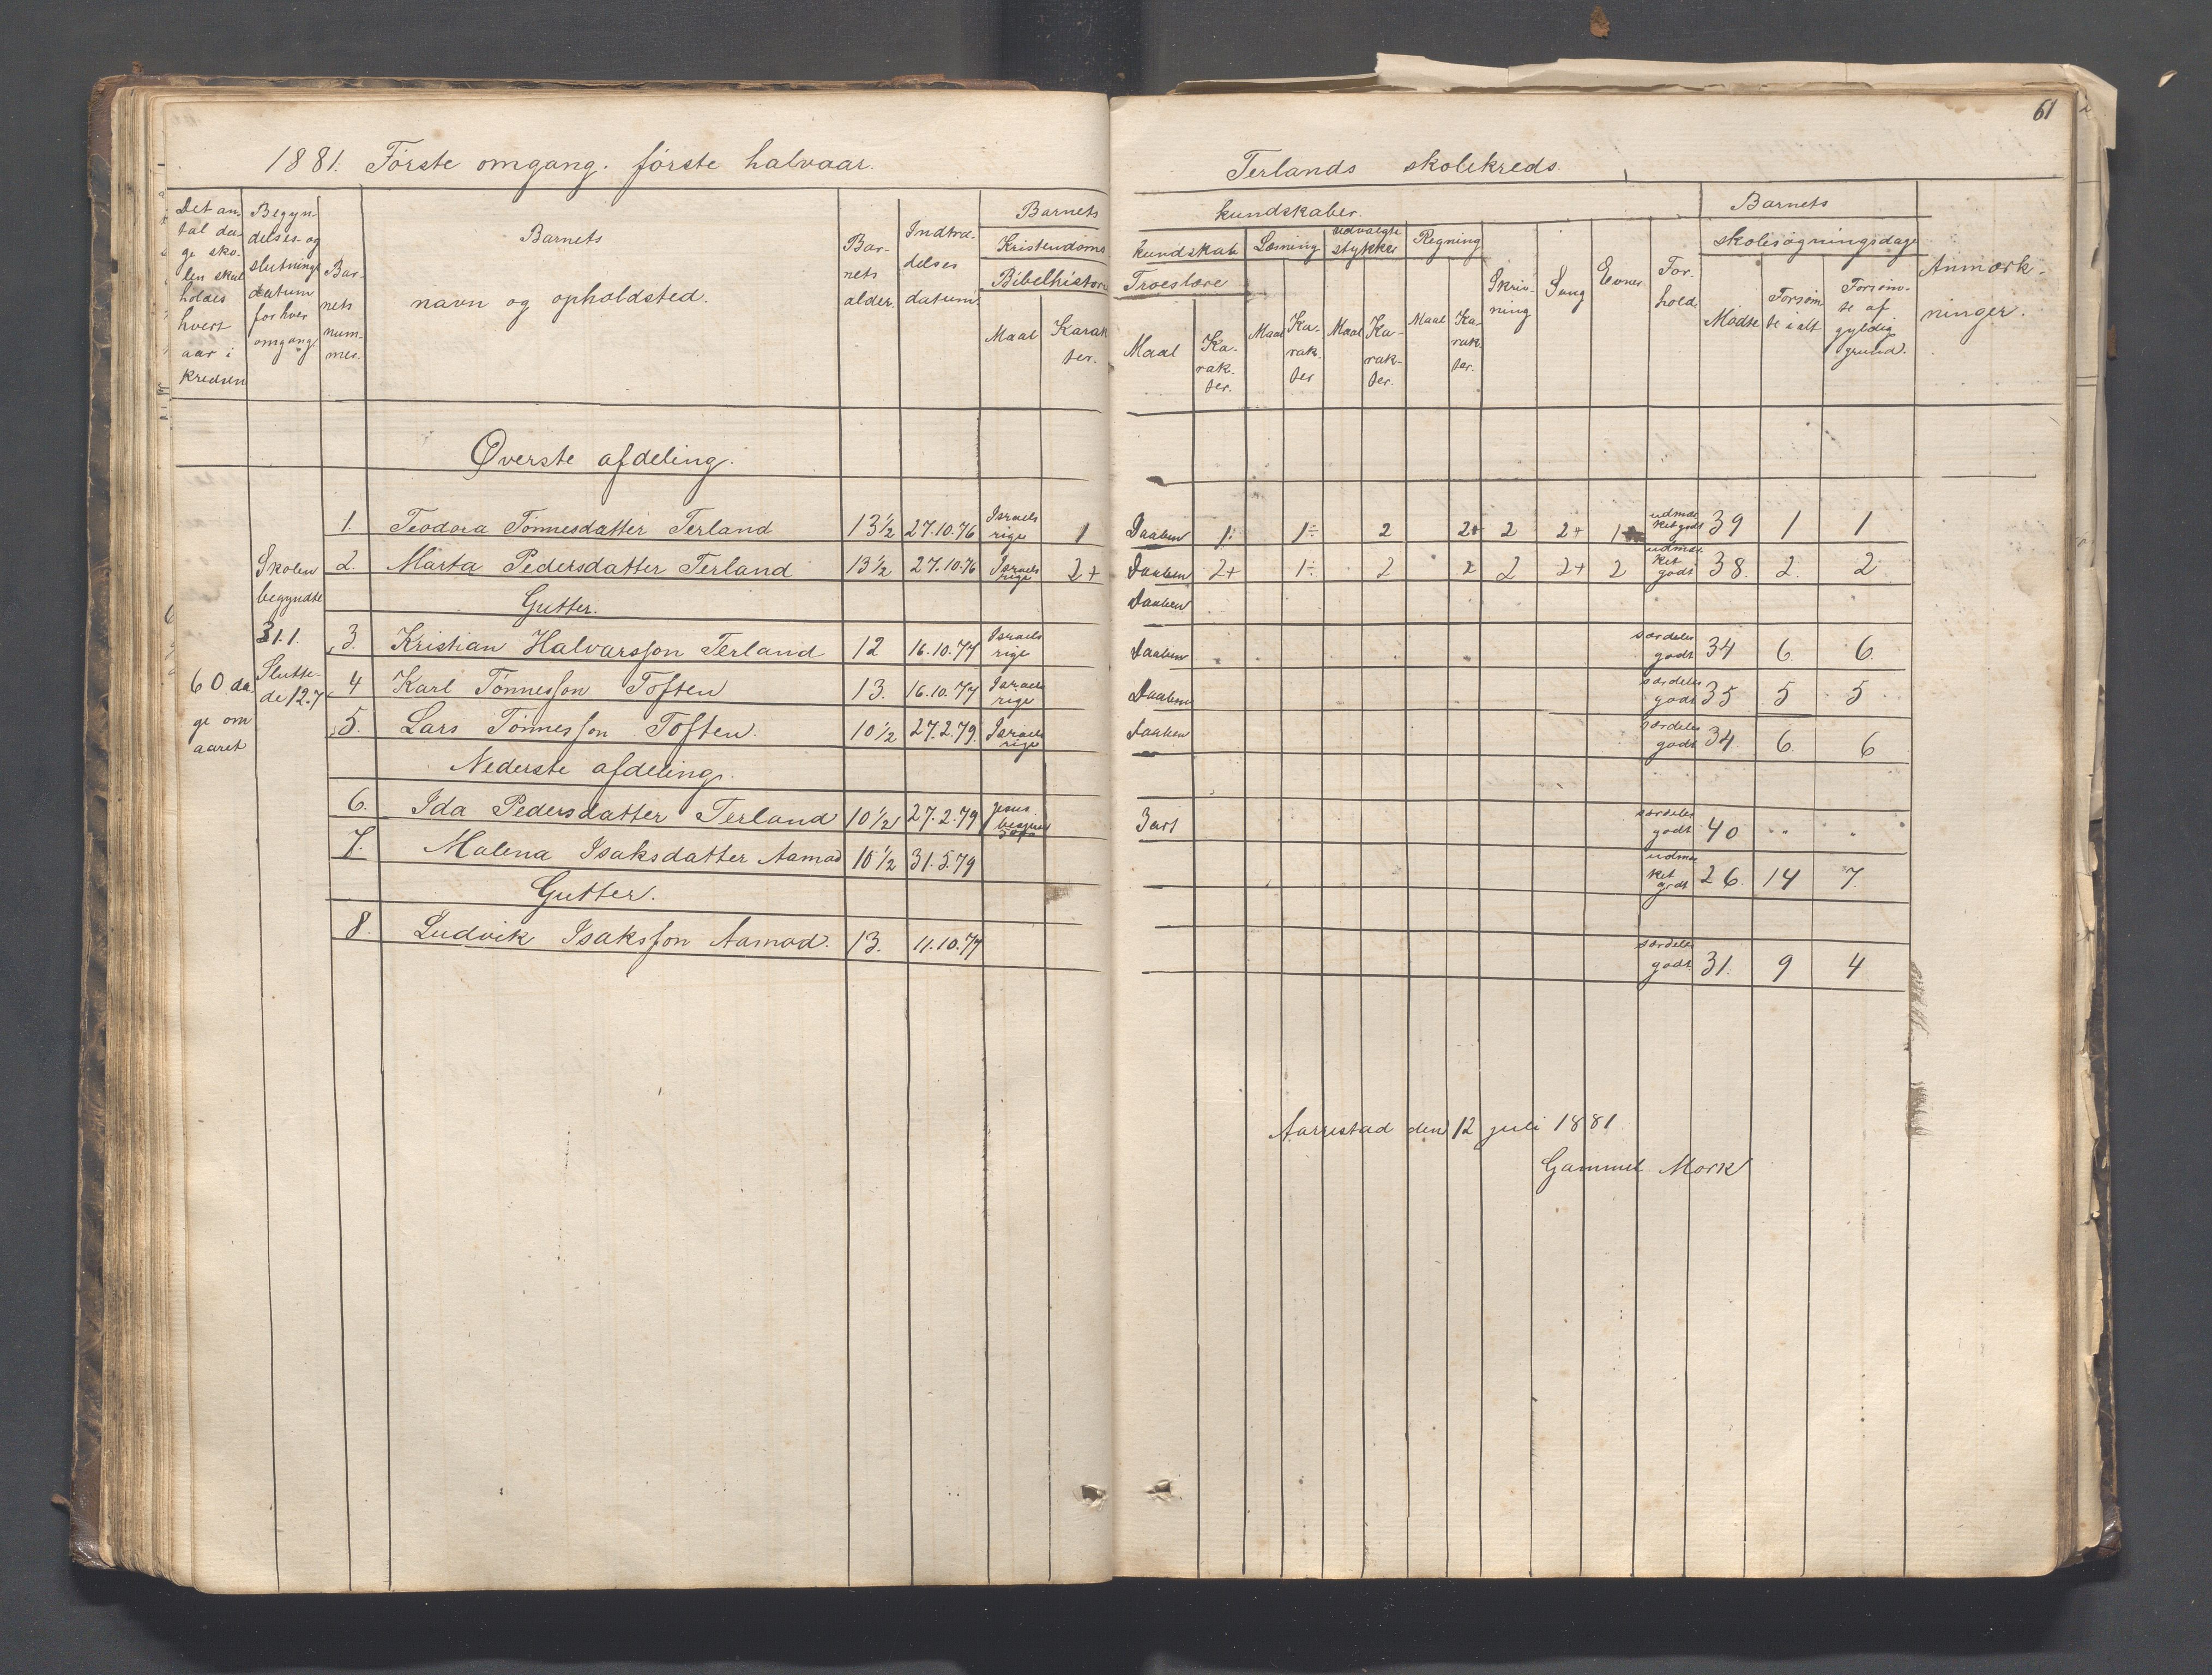 61
1881. Første omgang. første halvaar.
Terlands skolekreds.
Det antal dage skolen skal holdes hvert aar i kredsen
Begyndelses- og slutningsdatum for hver omgang
Barnets nummer.
Barnets navn og opholdsted.
Barnets alder.
Indtrædelses datum.
Barnets kundskaber.
Kristendomskundskab
Bibelhistorie
Maal
Karakter.
Troeslære
Maal
Karakter.
Læsning
Maal
Karakter
Udvalgte stykker
Maal
Karakter.
Regning
Maal
Karakter.
Skrivning
Sang
Evner
Forhold.
Barnets skolesøgningsdage
Mødte
Forsømte i alt
Forsømte af gyldig grund.
Anmærkninger.
Øverste afdeling.
60 dage om aaret
Skolen begyndte 31.1.
Sluttede 12.7
1. Teodora Tønnesdatter Terland 13½ 27.10.76 Israels rige 1 Daaben 1÷ 1÷ 2 2+ 2 2+ 1 udmærket godt 39 1 1
2. Marta Pedersdatter Terland 13½ 27.10.76 Israels rige 2+ Daaben 2+ 1÷ 2 2 2 2+ 2 udmærket godt 38. 2. 2
Gutter. Daaben
3. Kristian Halvarsson Terland 12 16.10.77 Israels rige Daaben særdeles godt 34 6. 6.
4 Karl Tønnesson Toften 13. 16.10.77 Israels rige Daaben særdeles godt 35 5 5
5. Lars Tønnesson Toften. 10½ 27.2.79. Israels rige Daaben særdeles godt 34 6. 6
Nederste afdeling.
6. Ida Pedersdatter Terland 10½ 27.2.79 Jesus 3 art særdeles godt 40 " "
7. Malena Isaksdatter Aamod 10½ 31.5.79 udmærket godt 26. 14 7.
Gutter.
8. Ludvik Isaksson Aamod. 13. 11.10.77 særdeles godt 31. 9 4
Aarrestad den 12 juli 1881
Gammel Mork